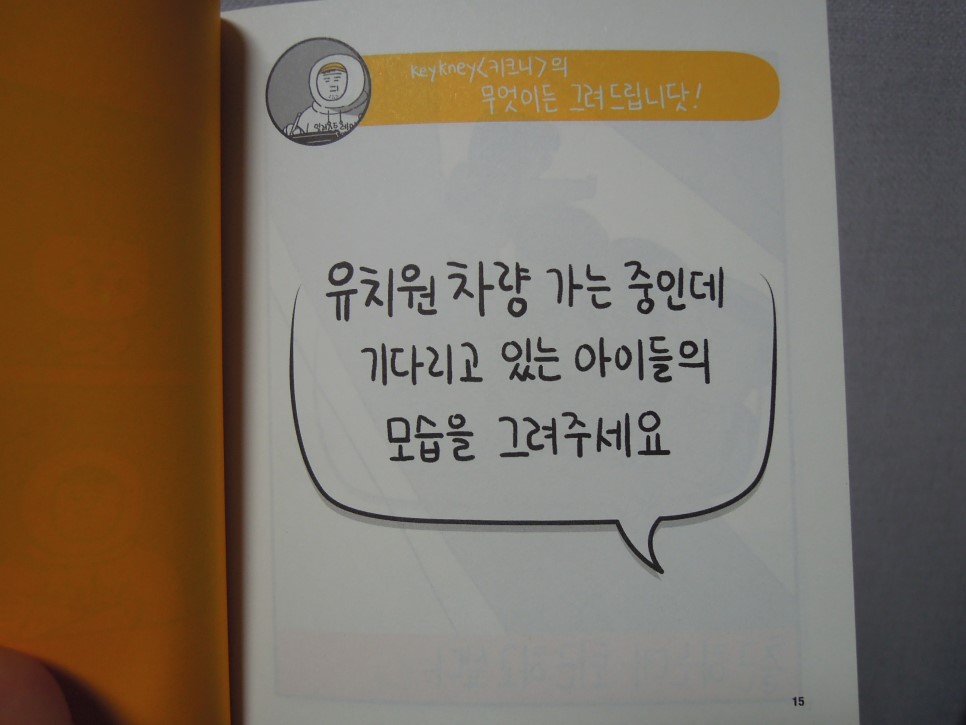 keykney<키크니>의
무엇이든 그려드립니닷!
유치원 차량 가는 중인데
기다리고 있는 아이들의
모습을 그려주세요
15